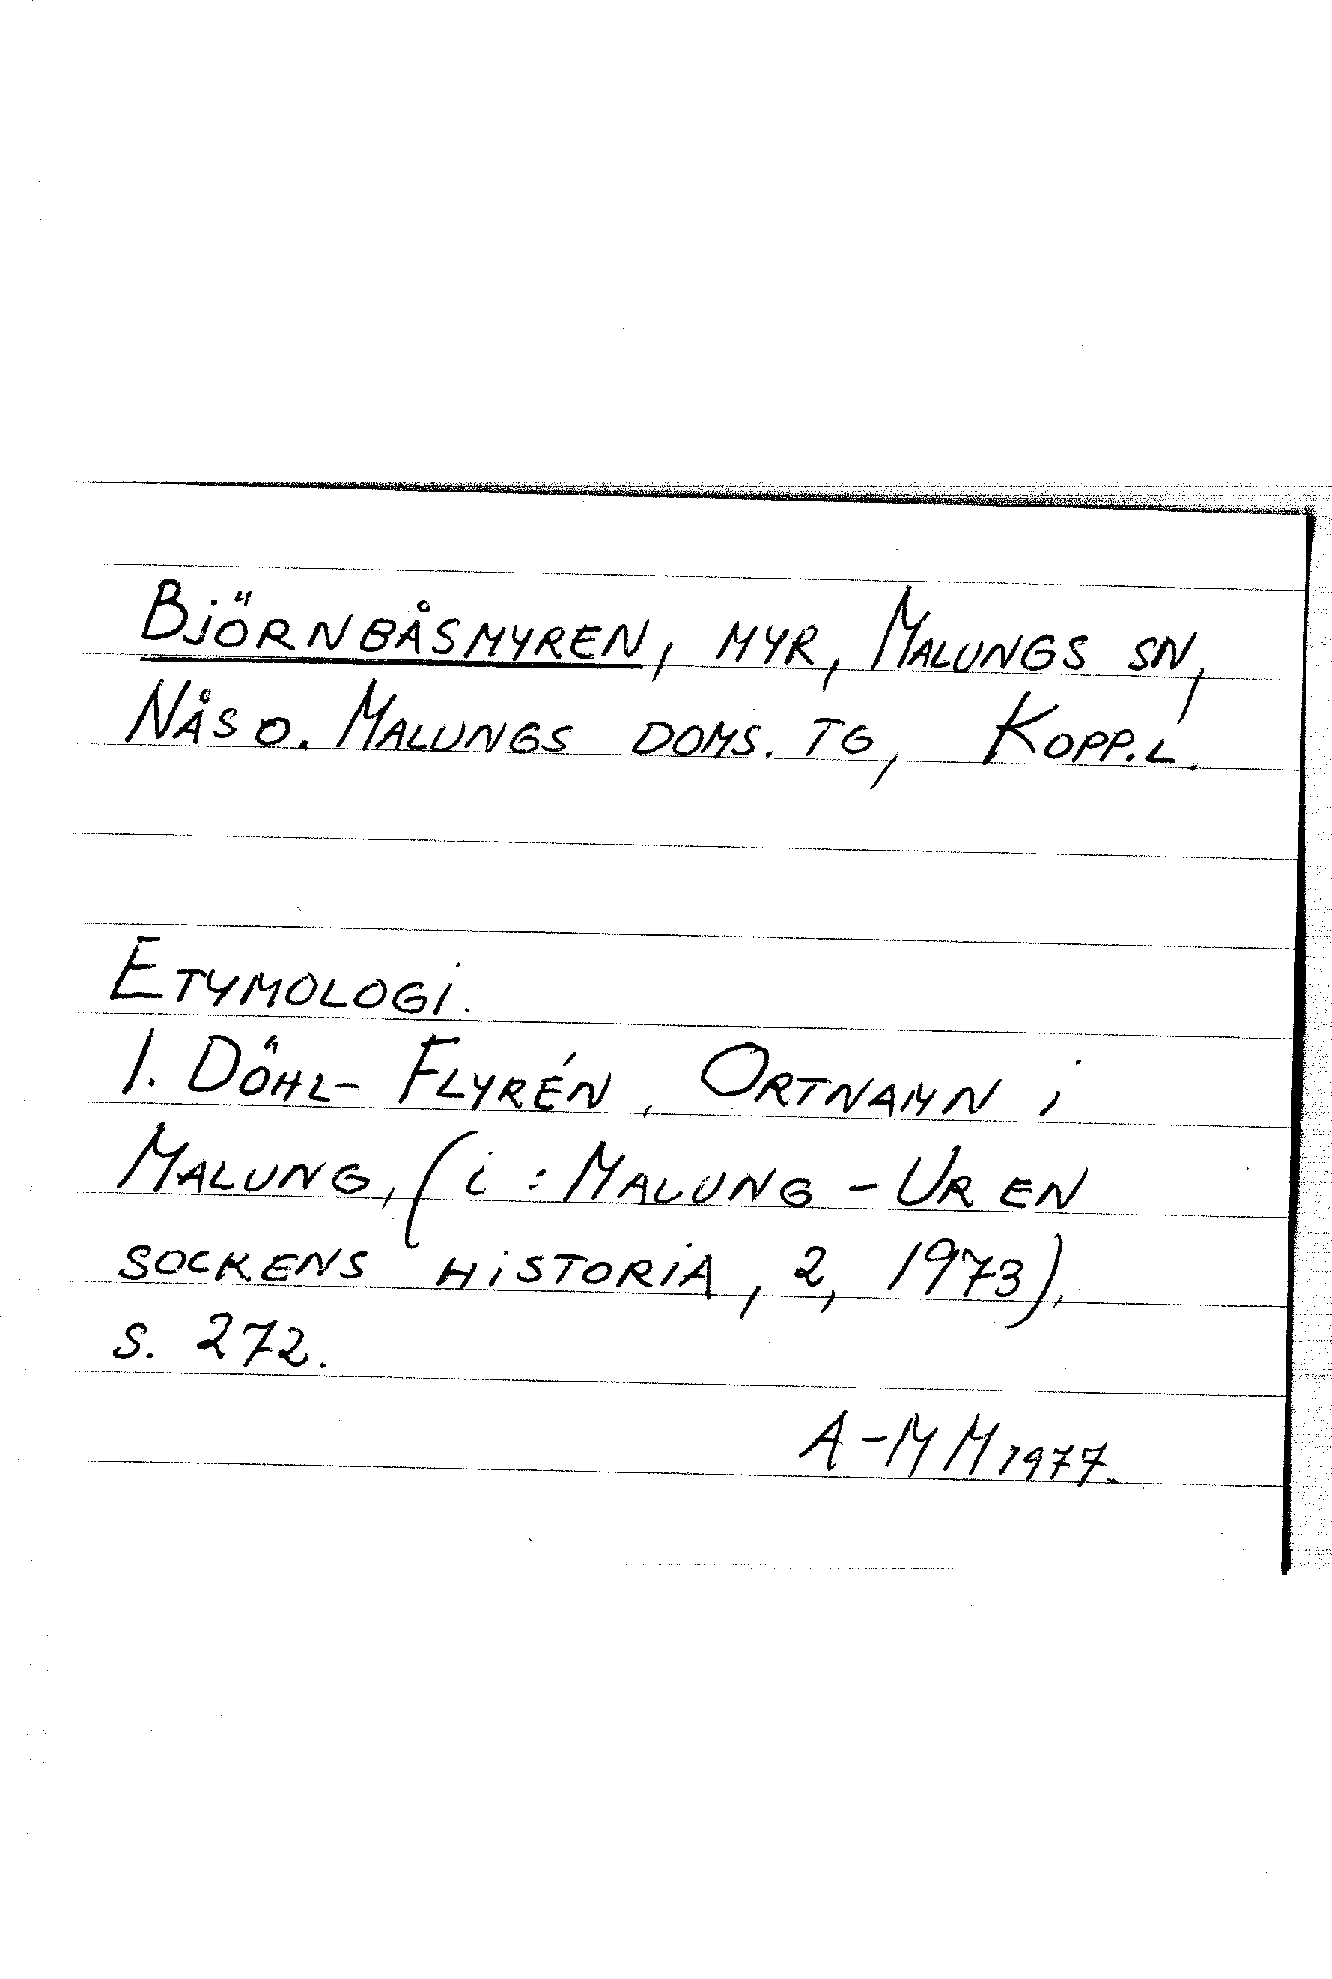 Björnbåsmyren, myr, Malungs sn,
Nås o. Malungs doms. tg, Kopp.l.
Etymologi.
I. Döhl-Flyrén, Ortnamn i
Malung, (i: Malung - Ur en
sockens historia, 2, 1973),
s. 272.
A-MM 1977.